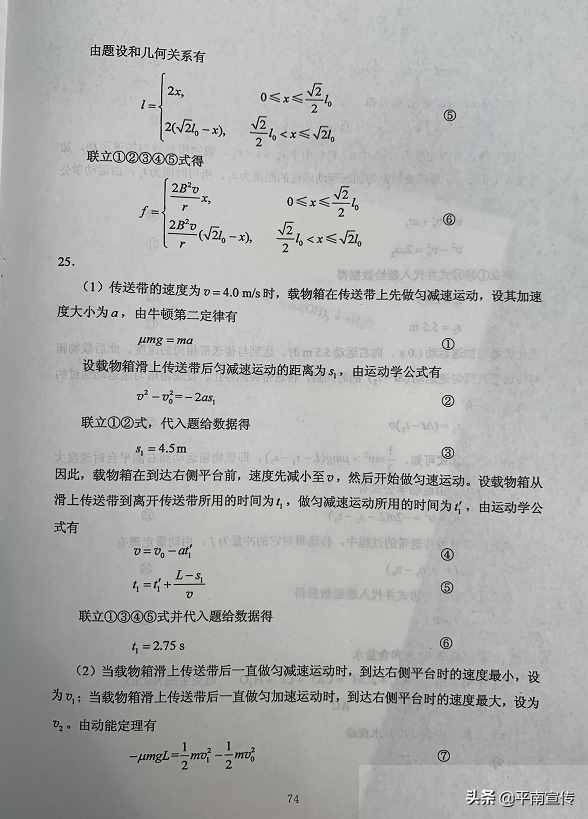 由题设和几何关系有
l = { 2x, 0≤x≤√2/2 l₀
2(√2l₀−x), √2/2 l₀<x≤√2l₀ ⑤
联立①②③④⑤式得
f = { 2B²v/r x, 0≤x≤√2/2 l₀
2B²v/r (√2l₀−x), √2/2 l₀<x≤√2l₀ ⑥
25.
（1）传送带的速度为 v = 4.0 m/s 时，载物箱在传送带上先做匀减速运动，设其加速
度大小为 a，由牛顿第二定律有
μmg = ma ①
设载物箱滑上传送带后匀减速运动的距离为 s₁，由运动学公式有
v² − v₀² = −2as₁ ②
联立①②式，代入题给数据得
s₁ = 4.5 m ③
因此，载物箱在到达右侧平台前，速度先减小至 v，然后开始做匀速运动。设载物箱从
滑上传送带到离开传送带所用的时间为 t₁，做匀减速运动所用的时间为 t₁′，由运动学公
式有
v = v₀ − at₁′ ④
t₁ = t₁′ + (L − s₁)/v ⑤
联立①③④⑤式并代入题给数据得
t₁ = 2.75 s ⑥
（2）当载物箱滑上传送带后一直做匀减速运动时，到达右侧平台时的速度最小，设
为 v₁；当载物箱滑上传送带后一直做匀加速运动时，到达右侧平台时的速度最大，设为
v₂。由动能定理有
−μmgL = 1/2 mv₁² − 1/2 mv₀² ⑦
74
头条 @平南宣传